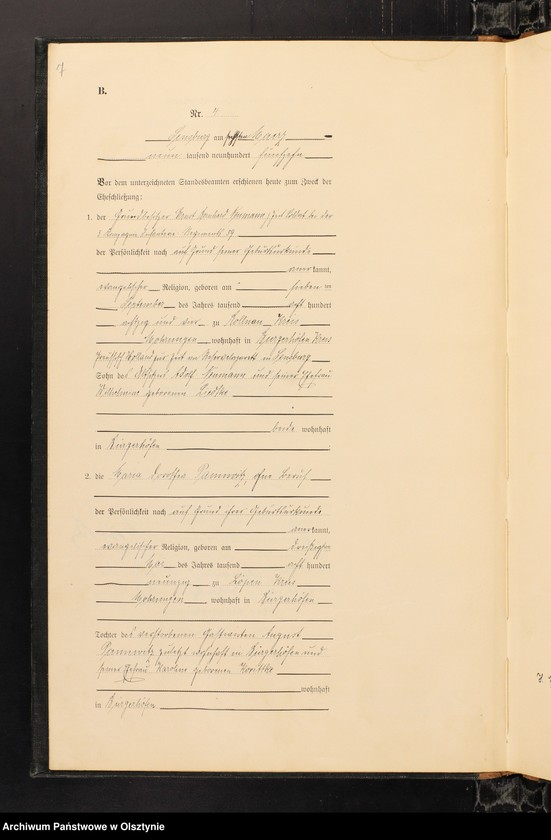 7
B.
Nr. 7
Sensburg am März
neun tausend neunhundert fünfzehn
Vor dem unterzeichneten Standesbeamten erschienen heute zum Zweck der
Eheschließung:
1. der Grundbesitzer Ernst Neumann, zur Zeit Soldat bei der
Infanterie-Regiments
der Persönlichkeit nach auf Grund seiner Geburtsurkunde
anerkannt,
evangelischer Religion, geboren am sieben
September des Jahres tausend acht hundert
achtzig und vier zu Kollnau Kreis
Mohrungen, wohnhaft in Bürgerhöfen Kreis
Preußisch Holland zur Zeit im Reservelazarett in Sensburg
Sohn des Adolf Neumann und seiner Ehefrau
Wilhelmine geborenen
beide wohnhaft
in Bürgerhöfen
2. die Maria Dorothea Pannwitz, ohne Beruf
der Persönlichkeit nach auf Grund ihrer Geburtsurkunde
anerkannt,
evangelischer Religion, geboren am dreißigsten
Mai des Jahres tausend acht hundert
neunzig zu Löpen Kreis
Mohrungen, wohnhaft in Bürgerhöfen
Tochter des verstorbenen Gastwirten August
Pannwitz zuletzt wohnhaft in Bürgerhöfen und
seiner Ehefrau Karoline geborenen
wohnhaft
in Bürgerhöfen
Archiwum Państwowe w Olsztynie